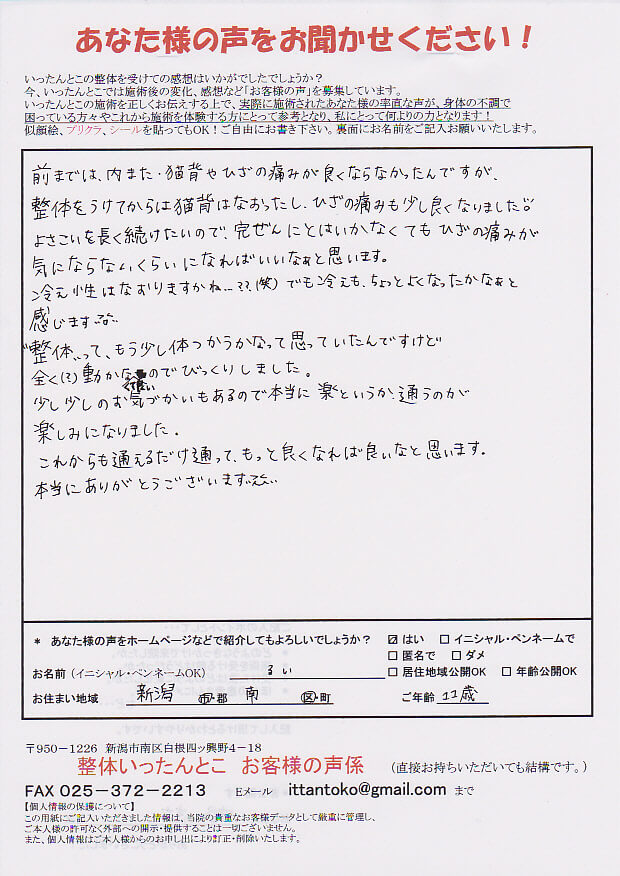 あなた様の声をお聞かせください！
いったんとこの整体を受けての感想はいかがでしたでしょうか？
今、いったんとこでは施術後の変化、感想など「お客様の声」を募集しています。
いったんとこの施術を正しくお伝えする上で、実際に施術されたあなた様の率直な声が、身体の不調で
困っている方々やこれから施術を体験する方にとって参考となり、私にとって何よりの力となります！
似顔絵、プリクラ、シールを貼ってもOK！ご自由にお書き下さい。裏面にお名前をご記入お願いいたします。
前までは、内また・猫背やひざの痛みが良くならなかったんですが、
整体をうけてからは猫背はなおったし、ひざの痛みも少し良くなりました
よさこいを長く続けたいので、完ぜんにとはいかなくてもひざの痛みが
気にならないくらいになればいいなぁと思います。
冷え性はなおりますかね…??(笑) でも冷えも、ちょっとよくなったかなぁと
感じます
"整体"って、もう少し体つかうかなって思っていたんですけど
全く(?)動かないのでびっくりしました。
少し少しのお気づかいもあるので本当に楽というか、通うのが
楽しみになりました。
これからも通えるだけ通って、もっと良くなれば良いなと思います。
本当にありがとうございます
* あなた様の声をホームページなどで紹介してもよろしいでしょうか？ ☑ はい □ イニシャル・ペンネームで
□ 匿名で □ ダメ
お名前（イニシャル・ペンネームOK） るい □ 居住地域公開OK □ 年齢公開OK
お住まい地域 新潟 市・郡 南 区・町 ご年齢 22歳
〒950－1226 新潟市南区白根四ッ興野4－18
整体いったんとこ お客様の声係 （直接お持ちいただいても結構です。）
FAX 025－372－2213 Eメール ittantoko@gmail.com まで
【個人情報の保護について】
この用紙にご記入いただきました情報は、当院の貴重なお客様データとして厳重に管理し、
ご本人様の許可なく外部への開示・提供することは一切ございません。
また、個人情報はご本人様からのお申し出により訂正・削除いたします。